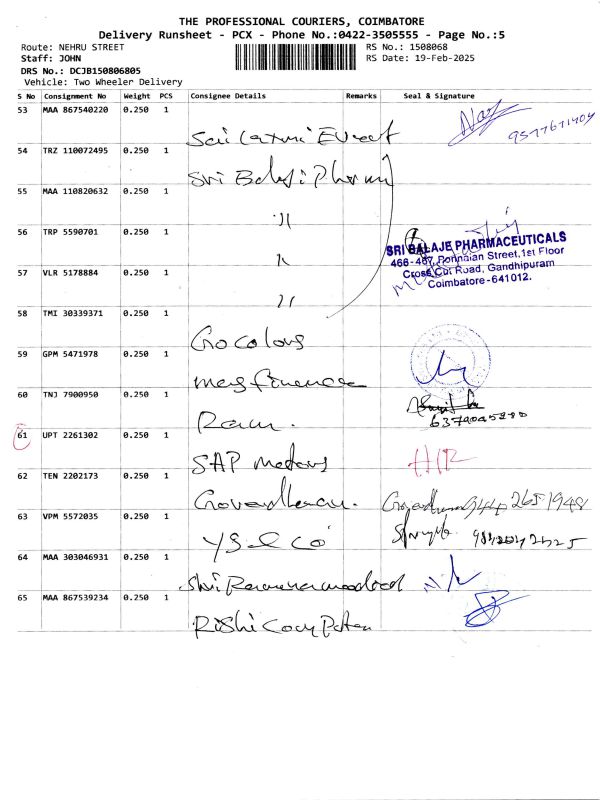 THE PROFESSIONAL COURIERS, COIMBATORE
Delivery Runsheet - PCX - Phone No.:0422-3505555 - Page No.:5
Route: NEHRU STREET
RS No.: 1508068
Staff: JOHN
RS Date: 19-Feb-2025
DRS No.: DCJB150806805
Vehicle: Two Wheeler Delivery
S No Consignment No Weight PCS Consignee Details Remarks Seal & Signature
53 MAA 867540220 0.250 1
Sai Laxmi
54 TRZ 110072495 0.250 1
Sri Balaji
55 MAA 110820632 0.250 1
56 TRP 5590701 0.250 1
SRI BALAJE PHARMACEUTICALS
466-467, Ponnaian Street, 1st Floor
Cross Cut Road, Gandhipuram
Coimbatore-641012.
57 VLR 5178884 0.250 1
58 TMI 30339371 0.250 1
59 GPM 5471978 0.250 1
60 TNJ 7900950 0.250 1
Ram.
61 UPT 2261302 0.250 1
SAP Motors
62 TEN 2202173 0.250 1
63 VPM 5572035 0.250 1
64 MAA 303046931 0.250 1
Shri
65 MAA 867539234 0.250 1
Rishi